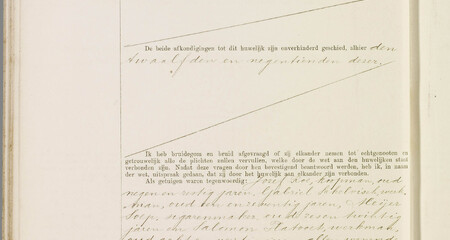 De beide afkondigingen tot dit huwelijk zijn onverhinderd geschied, alhier den
twaalfden en negentienden dezer
Ik heb bruidegom en bruid afgevraagd of zij elkander nemen tot echtgenooten en
getrouwelijk alle de plichten zullen vervullen, welke door de wet aan den huwelijken staat
verbonden zijn. Nadat deze vragen door hen bevestigend beantwoord werden, heb ik, in naam
der wet, uitspraak gedaan, dat zij door het huwelijk aan elkander zijn verbonden.
Als getuigen waren tegenwoordig: Josef koopman, oud
negen en zestig jaren, Gabriel werk-
man, oud een en zeventig jaren, Meijer
sigarenmaker oud zeven twintig
jaren en Salomon werkman,